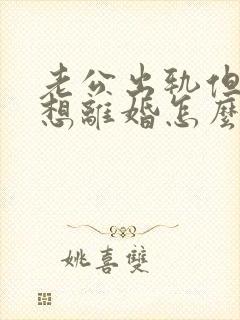 老公出轨但
想離婚怎麼
姚喜雙